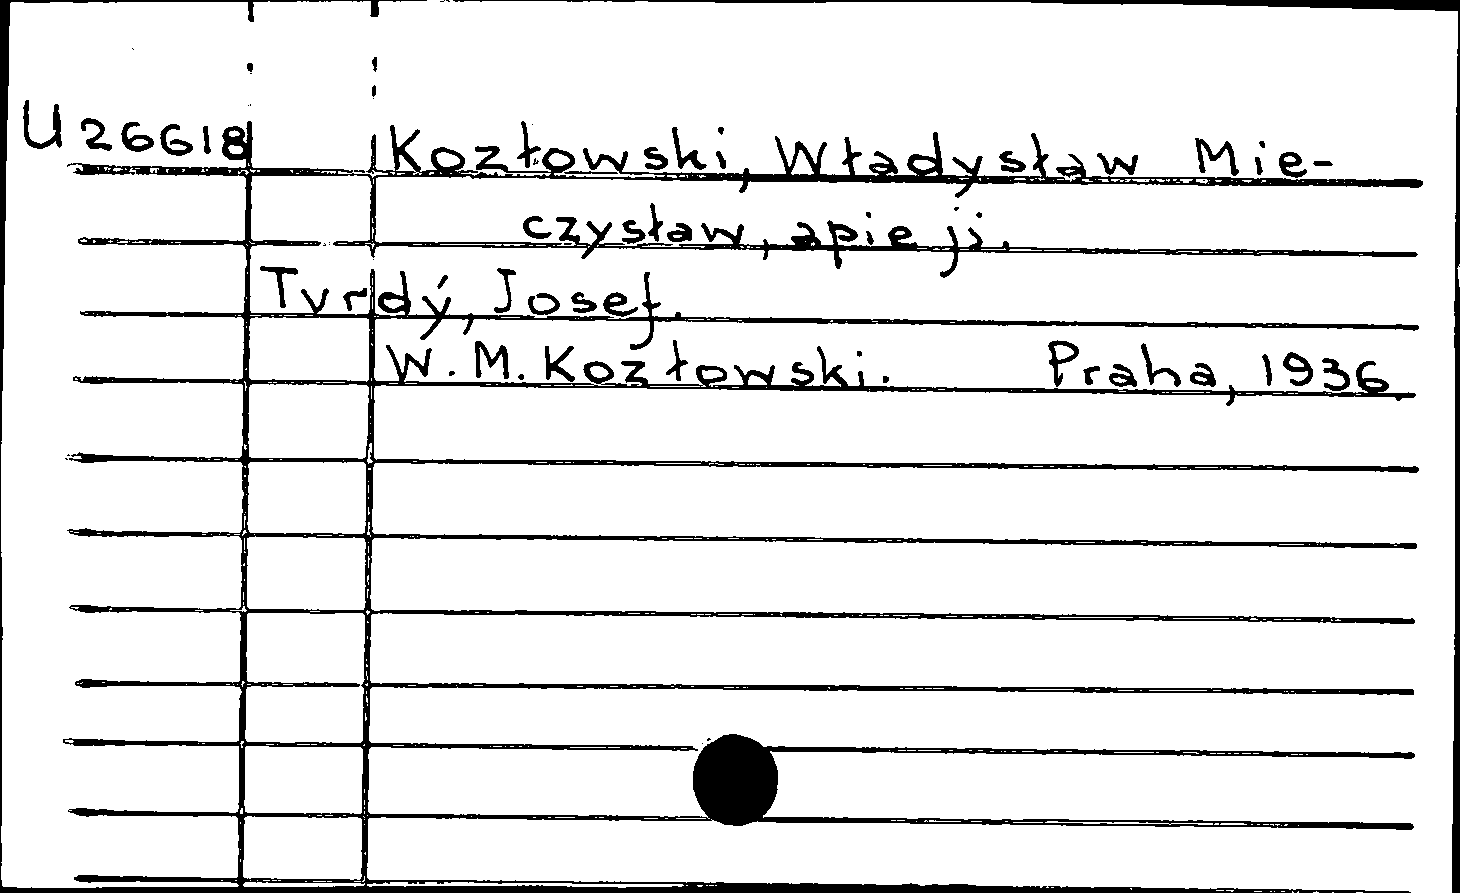 U 26618 Kozłowski, Władysław Mie-
czysław, apie jį.
Tvrdý, Josef.
W. M. Kozłowski. Praha, 1936.